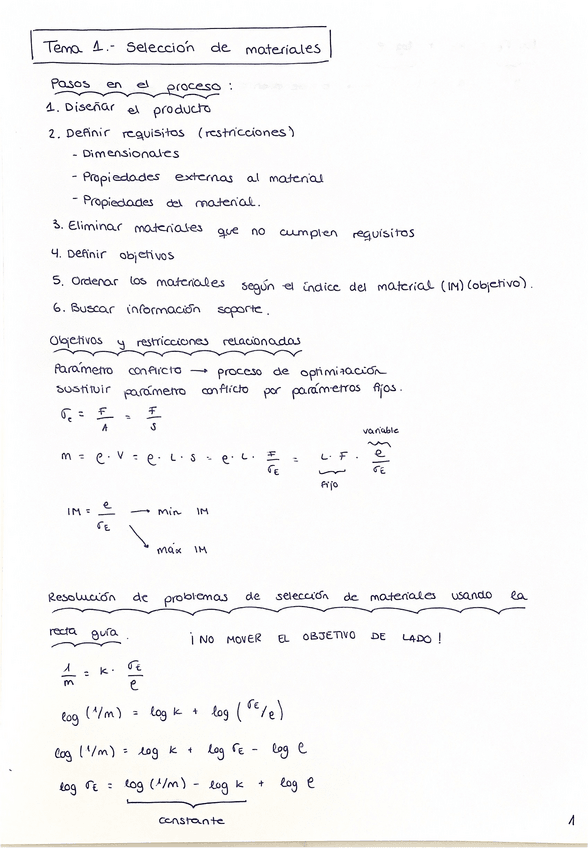 Tema 1.- Selección de materiales
Pasos en el proceso:
1. Diseñar el producto
2. Definir requisitos (restricciones)
- Dimensionales
- Propiedades externas al material
- Propiedades del material.
3. Eliminar materiales que no cumplen requisitos
4. Definir objetivos
5. Ordenar los materiales según el índice del material (IM) (objetivo).
6. Buscar información soporte.
Objetivos y restricciones relacionadas
Parámetro conflicto → proceso de optimización
sustituir parámetro conflicto por parámetros fijos.
σe = F/A = F/S
variable
m = ρ · V = ρ · L · S = ρ · L · F/σE = L · F · ρ/σE
fijo
IM = ρ/σE → min IM
↘ máx IM
Resolución de problemas de selección de materiales usando la
recta guía. ¡NO MOVER EL OBJETIVO DE LADO!
1/m = k · σE/ρ
log (1/m) = log k + log (σE/ρ)
log (1/m) = log k + log σE - log ρ
log σE = log (1/m) - log k + log ρ
constante
1